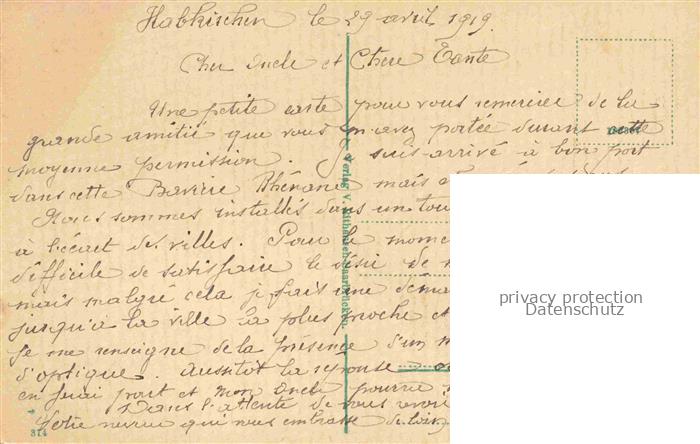 Habkirchen le 29 avril 1919.
Cher Oncle et Chère Tante
Une petite carte pour vous remercier de la
grande amitié que vous m'avez portée durant cette
moyenne permission. Je suis arrivé à bon port
dans cette Bavière Rhénane mais
Nous sommes installés dans un
à l'écart des villes. Pour le
difficile de satisfaire le désir de
mais malgré cela je fais une
jusqu'à la ville la plus proche et
je me renseigne de la présence d'un
d'optique. Aussitôt la réponse
en ferai part et mon Oncle pourra
Dans l'attente de vous revoir
Votre neveu qui vous embrasse de loin
314
privacy protection
Datenschutz